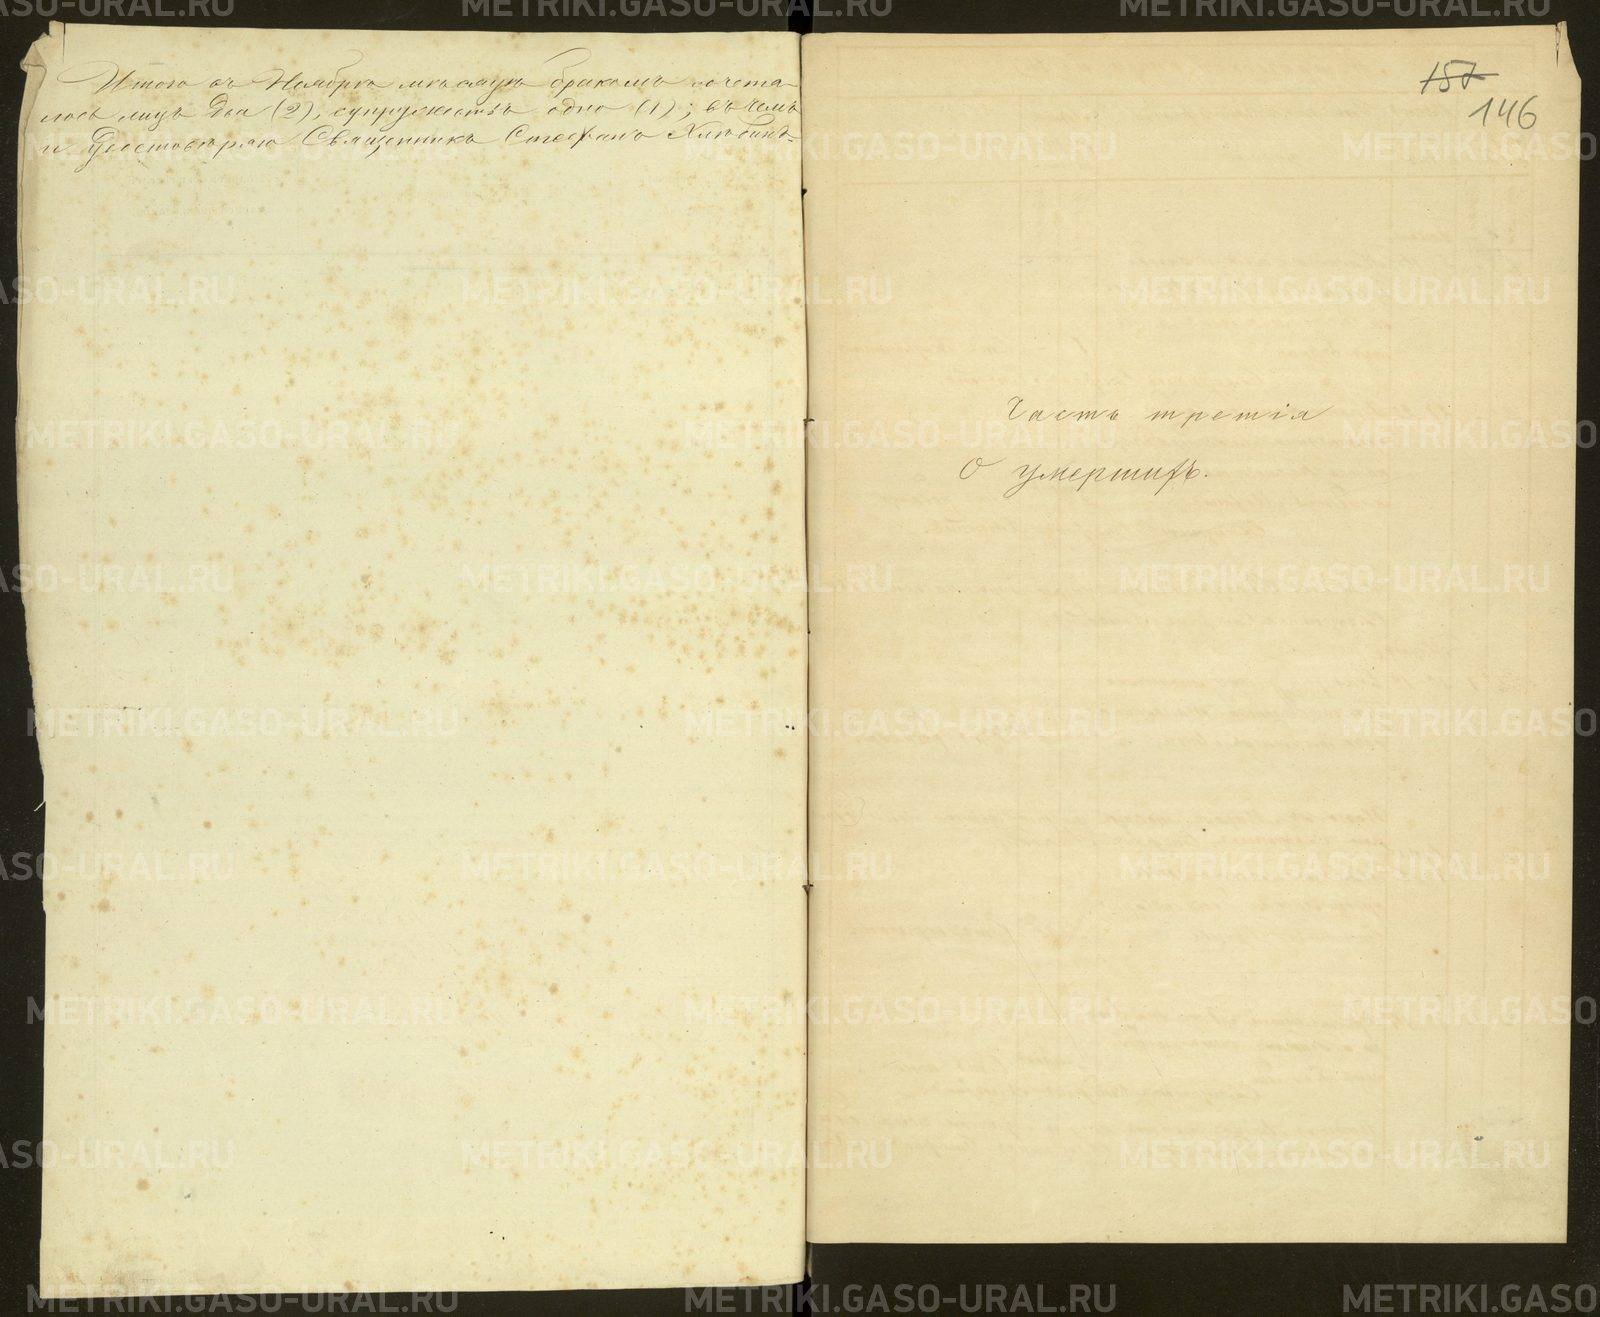 Итого въ Ноябрѣ мѣсяцѣ бракомъ сочета-
лось лицъ два (2), супружествъ одно (1); въ чемъ
и удостовѣряю Священникъ Стефанъ Хлѣбинъ.
157
146
Часть третія
О умершихъ.
METRIKI.GASO-URAL.RU